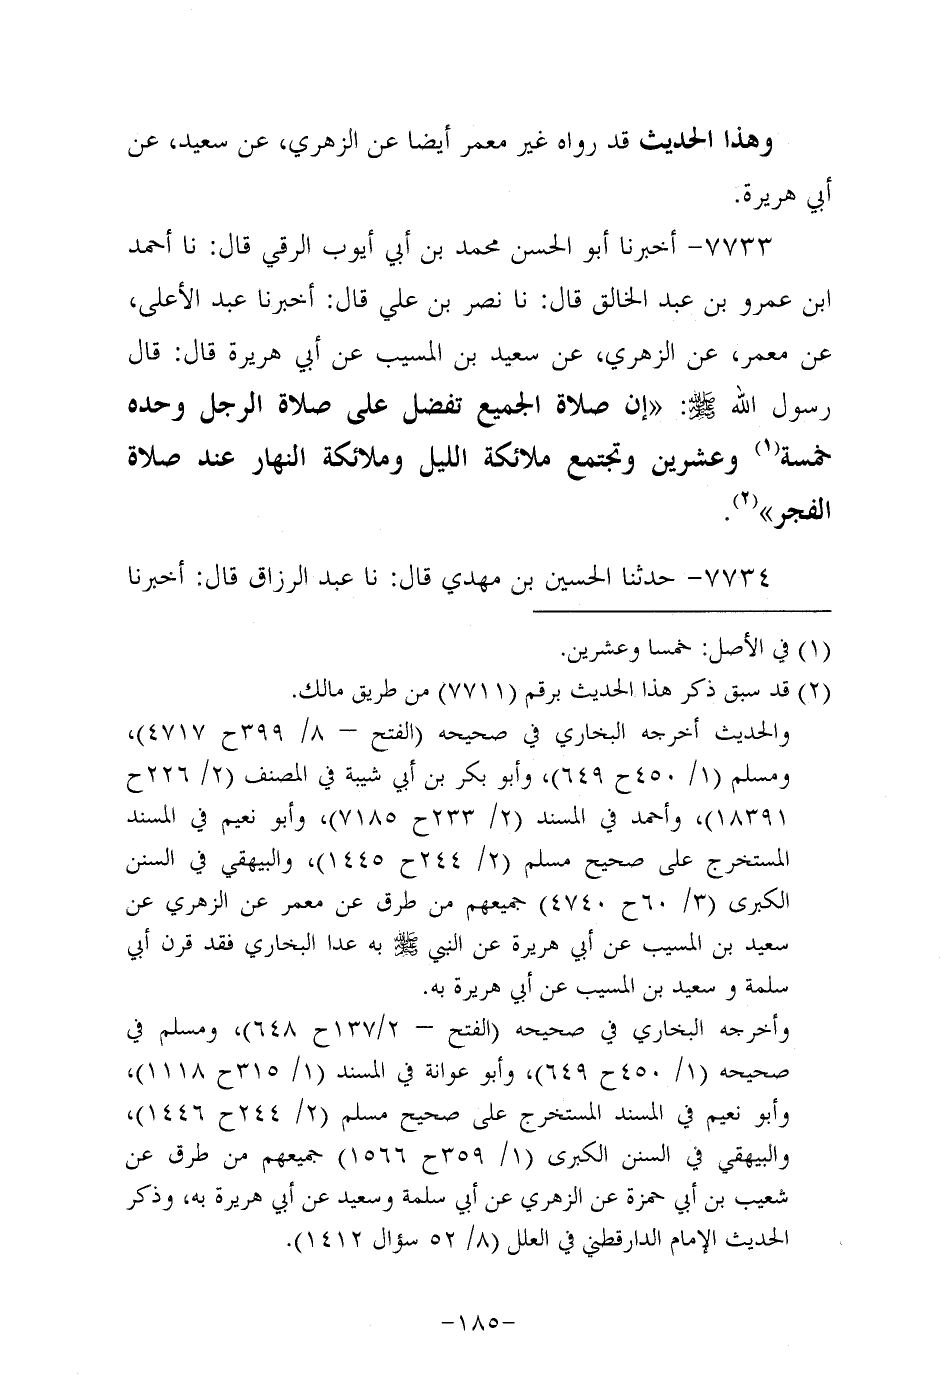 وهذا الحديث قد رواه غير معمر أيضا عن الزهري، عن سعيد، عن
أبي هريرة.
٧٧٣٣- أخبرنا أبو الحسن محمد بن أبي أيوب الرقي قال: نا أحمد
ابن عمرو بن عبد الخالق قال: نا نصر بن علي قال: أخبرنا عبد الأعلى،
عن معمر، عن الزهري، عن سعيد بن المسيب عن أبي هريرة قال: قال
رسول الله ﷺ: «إن صلاة الجميع تفضل على صلاة الرجل وحده
خمسة(١) وعشرين وتجتمع ملائكة الليل وملائكة النهار عند صلاة
الفجر»(٢).
٧٧٣٤- حدثنا الحسين بن مهدي قال: نا عبد الرزاق قال: أخبرنا
(١) في الأصل: خمسا وعشرين.
(٢) قد سبق ذكر هذا الحديث برقم (٧٧١١) من طريق مالك.
والحديث أخرجه البخاري في صحيحه (الفتح – ٨/ ٣٩٩ح ٤٧١٧)،
ومسلم (١/ ٤٥٠ح ٦٤٩)، وأبو بكر بن أبي شيبة في المصنف (٢/ ٢٢٦ح
١٨٣٩١)، وأحمد في المسند (٢/ ٢٣٣ح ٧١٨٥)، وأبو نعيم في المسند
المستخرج على صحيح مسلم (٢/ ٢٤٤ح ١٤٤٥)، والبيهقي في السنن
الكبرى (٣/ ٦٠ح ٤٧٤٠) جميعهم من طرق عن معمر عن الزهري عن
سعيد بن المسيب عن أبي هريرة عن النبي ﷺ به عدا البخاري فقد قرن أبي
سلمة و سعيد بن المسيب عن أبي هريرة به.
وأخرجه البخاري في صحيحه (الفتح – ١٣٧/٢ح ٦٤٨)، ومسلم في
صحيحه (١/ ٤٥٠ح ٦٤٩)، وأبو عوانة في المسند (١/ ٣١٥ح ١١١٨)،
وأبو نعيم في المسند المستخرج على صحيح مسلم (٢/ ٢٤٤ح ١٤٤٦)،
والبيهقي في السنن الكبرى (١/ ٣٥٩ح ١٥٦٦) جميعهم من طرق عن
شعيب بن أبي حمزة عن الزهري عن أبي سلمة وسعيد عن أبي هريرة به، وذكر
الحديث الإمام الدارقطني في العلل (٨/ ٥٢ سؤال ١٤١٢).
-١٨٥-